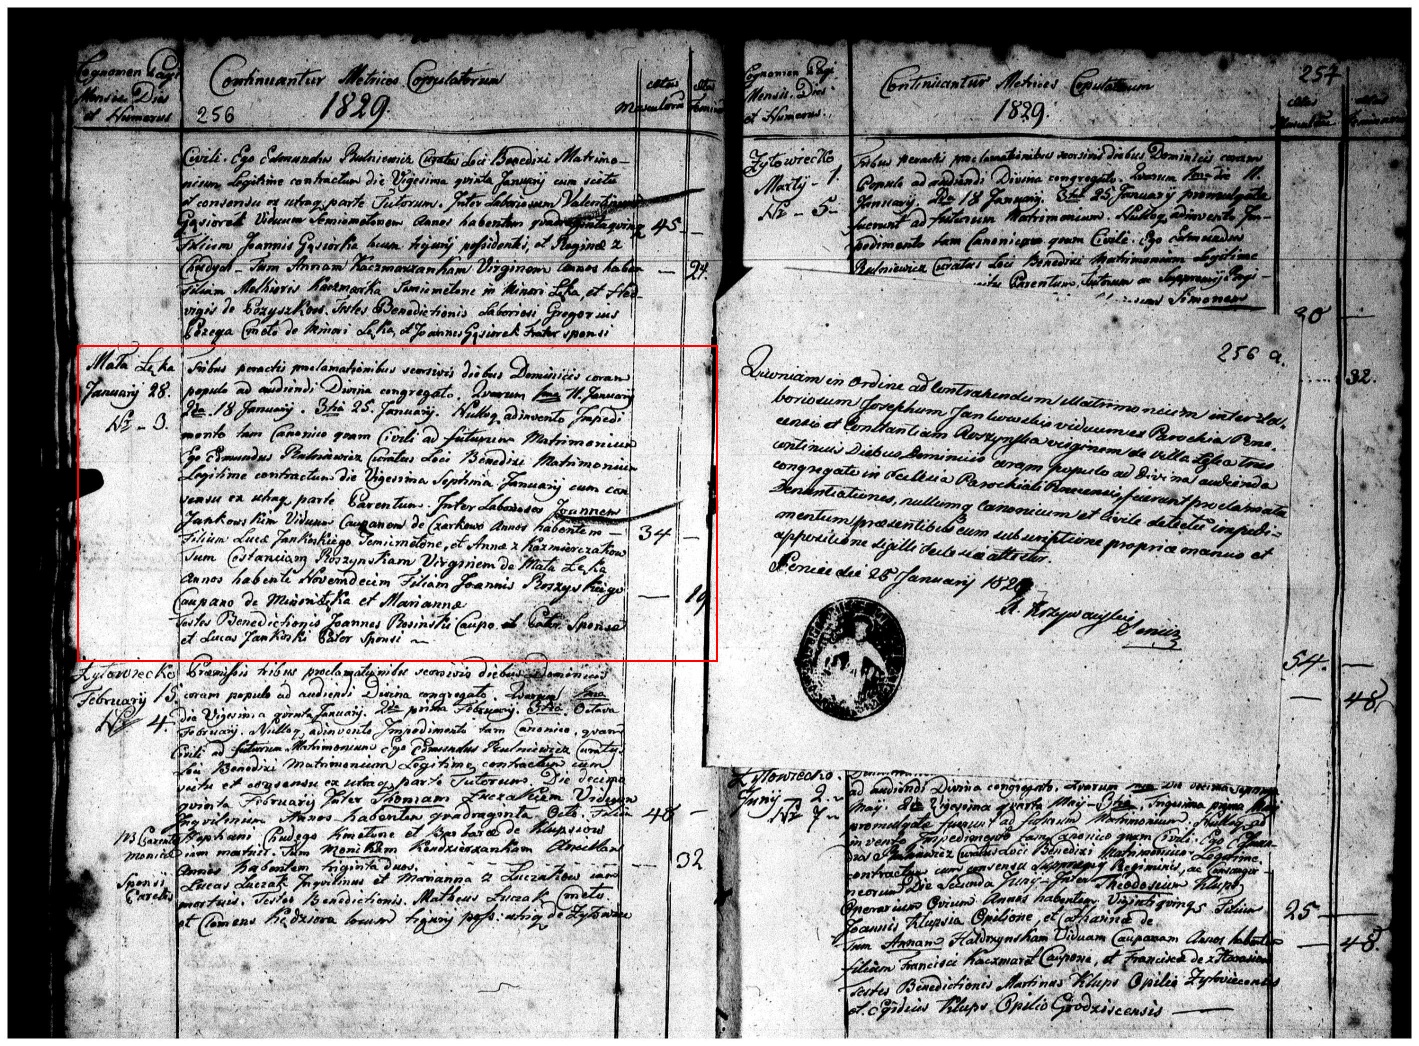 Cognomen Pagi
Mensis Dies
et Numerus
Continuantur Metrices Copulatorum
256 1829.
Ætas
Masculorum
Civili. Ego Edmundus Rutniewicz Curatus Loci Benedixi Matrimo-
nium Legitime contractum die Vigesima quinta Januarij cum scitu
et consensu ex utraq parte Tutorum. Inter Laboriosum Valentinum
Gąsiorek Viduum Semicmetonem Annos habentem
45 –
Filium Joannis Gąsiorka possidentis, et Reginæ z
Tum Annam Kaczmarzankam Virginem annos haben
– 24.
Filiam Kaczmarka Semicmetone in Minori Łęka, et
vigis de Testes Benedictionis Laboriosi Gregorius
de Minori Łęka, et Joannes Gąsiorek Frater sponsi
Mała Łęka
Januarij 28.
Nr – 3.
Tribus peractis proclamationibus seorsivis diebus Dominicis coram
populo ad audiendi Divina congregato. Quarum 1ma 11. Januarij
2da 18 January. 3tia 25. January. Nulloq adinvento Impedi
mento tam Canonico quam Civili ad futurum Matrimonium
Ego Edmundus Rutniewicz Curatus Loci Benedixi Matrimonium
Legitime contractum die Vigesima Septima January cum con
sensu ex utraq parte Parentum. Inter Laboriosos Joannem
Jankowskim Viduum Cauponem de Czarkowo Annos habentem –
34 –
Filium Lucæ Jankoskiego Semicmetone, et Annæ z Kazmierczakow
Tum Costanciam Roszynskam Virginem de Mała Łęka
Annos habente Novemdecim Filiam Joannis Roszyskiego
– 19
Caupano de Minori Łęka et Mariannæ
Testes Benedictionis Joannes Rosinski Caupo et Pater Sponsæ
et Lucas Jankoski Pater Sponsi ~
Zytowiecko
February 15.
Nr 4.
Præmissis tribus proclamationibus seorsivis diebus Dominicis
coram populo ad audiendi Divina congregato. Quarum 1ma
die Vigesima quinta January. 2da prima February. 3tia Octava
February. Nulloq adinvento Impedimento tam Canonico, quam
Civili ad futurum Matrimonium Ego Edmundus Rutniewicz Curatus
Loci Benedixi Matrimonium Legitime contractum cum
scitu et consensu ex utraq parte Tutorum. Die decima
quinta February Inter Thomam Łuczakiem Viduum
Inquilinum Annos habentem quadraginta Octo. Filium
48 –
Stephani Kmetone et Barbaræ de
iam mortuis. Tum Monikam
Annos habentem triginta duos.
– 32
Lucas Łuczak Inquilinus et Marianna z Łuczakow iam
mortuis. Testes Benedictionis. Matheus Łuczak Cmeto
et Clemens
NB Parentes
Monicæ
Sponsi
Parentes
Cognomen Pagi
Mensis. Dies
et Numerus.
Continuantur Metrices Copulatorum
1829.
257
Zytowiecko
Martÿ – 1.
Nr – 5 –
Tribus peractis proclamationibus seorsivis diebus Dominicis coram
Populo ad audiendi Divina congregato. Quarum 1ma die 11.
January. 2da 18 January. 3tia 25 January promulgatæ
fuerunt ad futurum Matrimonium. Nulloq adinvento Im-
pedimento tam Canonico quam Civile. Ego Edmundus
Rutniewicz Curatus Loci Benedixi Matrimonium Legitime
Parentum, Tutorum
Simonem
30 –
32.
256 a.
Quoniam in Ordine ad Contrahendum Matrimonium inter La-
boriosum Josephum Jankowski viduum ex Parochia Poni-
censis et Constantiam Roszynska virginem de villa Łęka tres
continuis Diebus Dominicis coram populo ad Divina audienda
congregato in Ecclesia Parochiali fuerunt proclamatæ
Denuntiationes, nullumq canonicum et civile detectu impedi-
mentum præsentibus cum subscriptione propriæ manus et
appositione sigilli Ecclesiæ attestor.
Poniec die 25 January 1829
54. –
– 48.
Zytowiecko.
Junÿ 2.
Nr 7.
ad audiendi Divina congregato. Quarum 1ma die decima septima
Maij 2da Vigesima quarta Maij 3tia trigesima prima Maij
promulgatæ fuerunt ad futurum Matrimonium. Nulloq ad
invento Impedimento tam Canonico quam Civili. Ego Edmun-
dus Rutniewicz Curatus Loci Benedixi Matrimonium Legitime
contractum cum consensu
Die Secunda Junÿ Inter Theodosium Klups
Operarium Ovium Annos habentem Viginti quinq Filium
25 –
Joannis Klupsia Opilione, et Catharinæ de
Tum Annam Viduam Cauponam Annos haben
– 48.
filiam Francisci Kaczmarek Caupone, et Francisca de
Testes Benedictionis Martinus Klups Opilio Zytoviecensis
et Egidius Klups Opilio Grodziscensis –